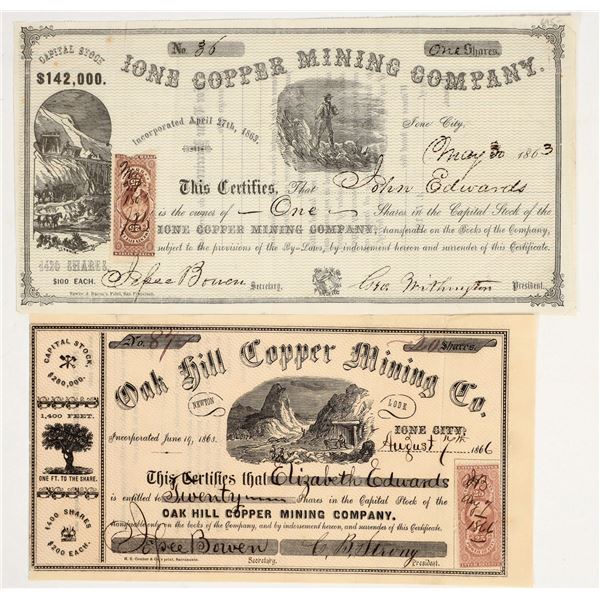 CAPITAL STOCK
$142,000.
1420 SHARES.
$100 EACH.
No. 36
One Shares.
IONE COPPER MINING COMPANY.
Incorporated April 27th, 1863.
Ione City,
May 30 1863
This Certifies, That John Edwards
is the owner of — One — Shares in the Capital Stock of the
IONE COPPER MINING COMPANY, transferable on the Books of the Company,
subject to the provisions of the By-Laws, by indorsement hereon and surrender of this Certificate.
Jesse Bowen Secretary.
Geo Withington President.
CAPITAL STOCK,
$280,000.
1,400 FEET.
ONE FT. TO THE SHARE.
1400 SHARES
$200 EACH.
No. 87
20 Shares.
Oak Hill Copper Mining Co.
NEWTON LODE
IONE CITY,
Incorporated June 19, 1863.
August 7th 1866
This Certifies that Elizabeth Edwards
is entitled to Twenty Shares in the Capital Stock of the
OAK HILL COPPER MINING COMPANY,
transferable only on the books of the Company, and by indorsement hereon, and surrender of this Certificate.
Jesse Bowen
Secretary.
C. B. Strong
President.